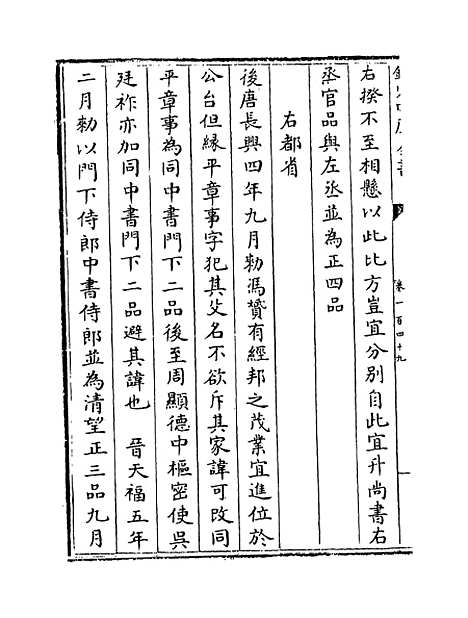 卷一百四十九
右揆不至相懸以此比方豈宜分別自此宜升尚書右
丞官品與左丞並為正四品
右都省
後唐長興四年九月勅馮贇有經邦之茂業宜進位於
公台但縁平章事字犯其父名不欲斥其家諱可改同
平章事為同中書門下二品後至周顯德中樞密使吳
廷祚亦加同中書門下二品避其諱也　晉天福五年
二月勅以門下侍郎中書侍郎並為清望正三品九月